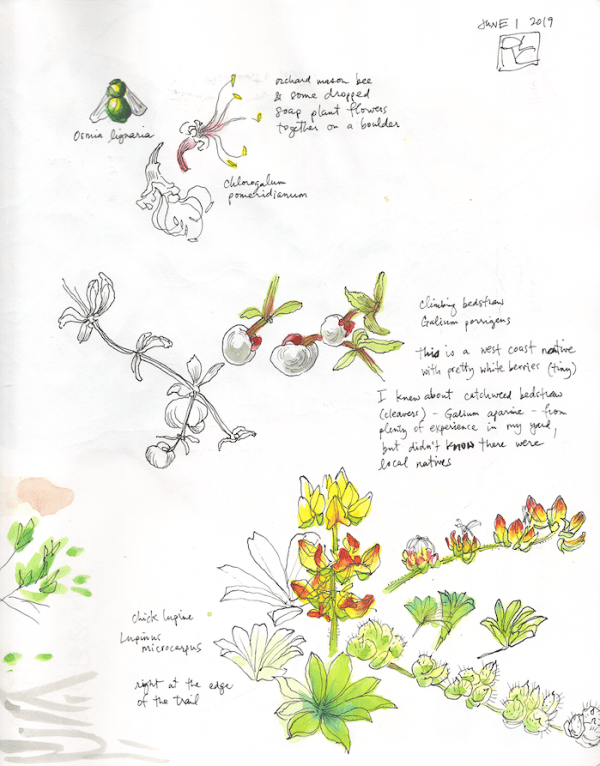 JUNE 1 2019
orchard mason bee
& some dropped
soap plant flowers
together on a boulder
Osmia lignaria
Chlorogalum
pomeridianum
climbing bedstraw
Galium porrigens
this is a west coast native
with pretty white berries (tiny)
I knew about catchweed bedstraw
(cleavers) - Galium aparine - from
plenty of experience in my yard,
but didn't KNOW there were
local natives
chick lupine
Lupinus
microcarpus
right at the edge
of the trail